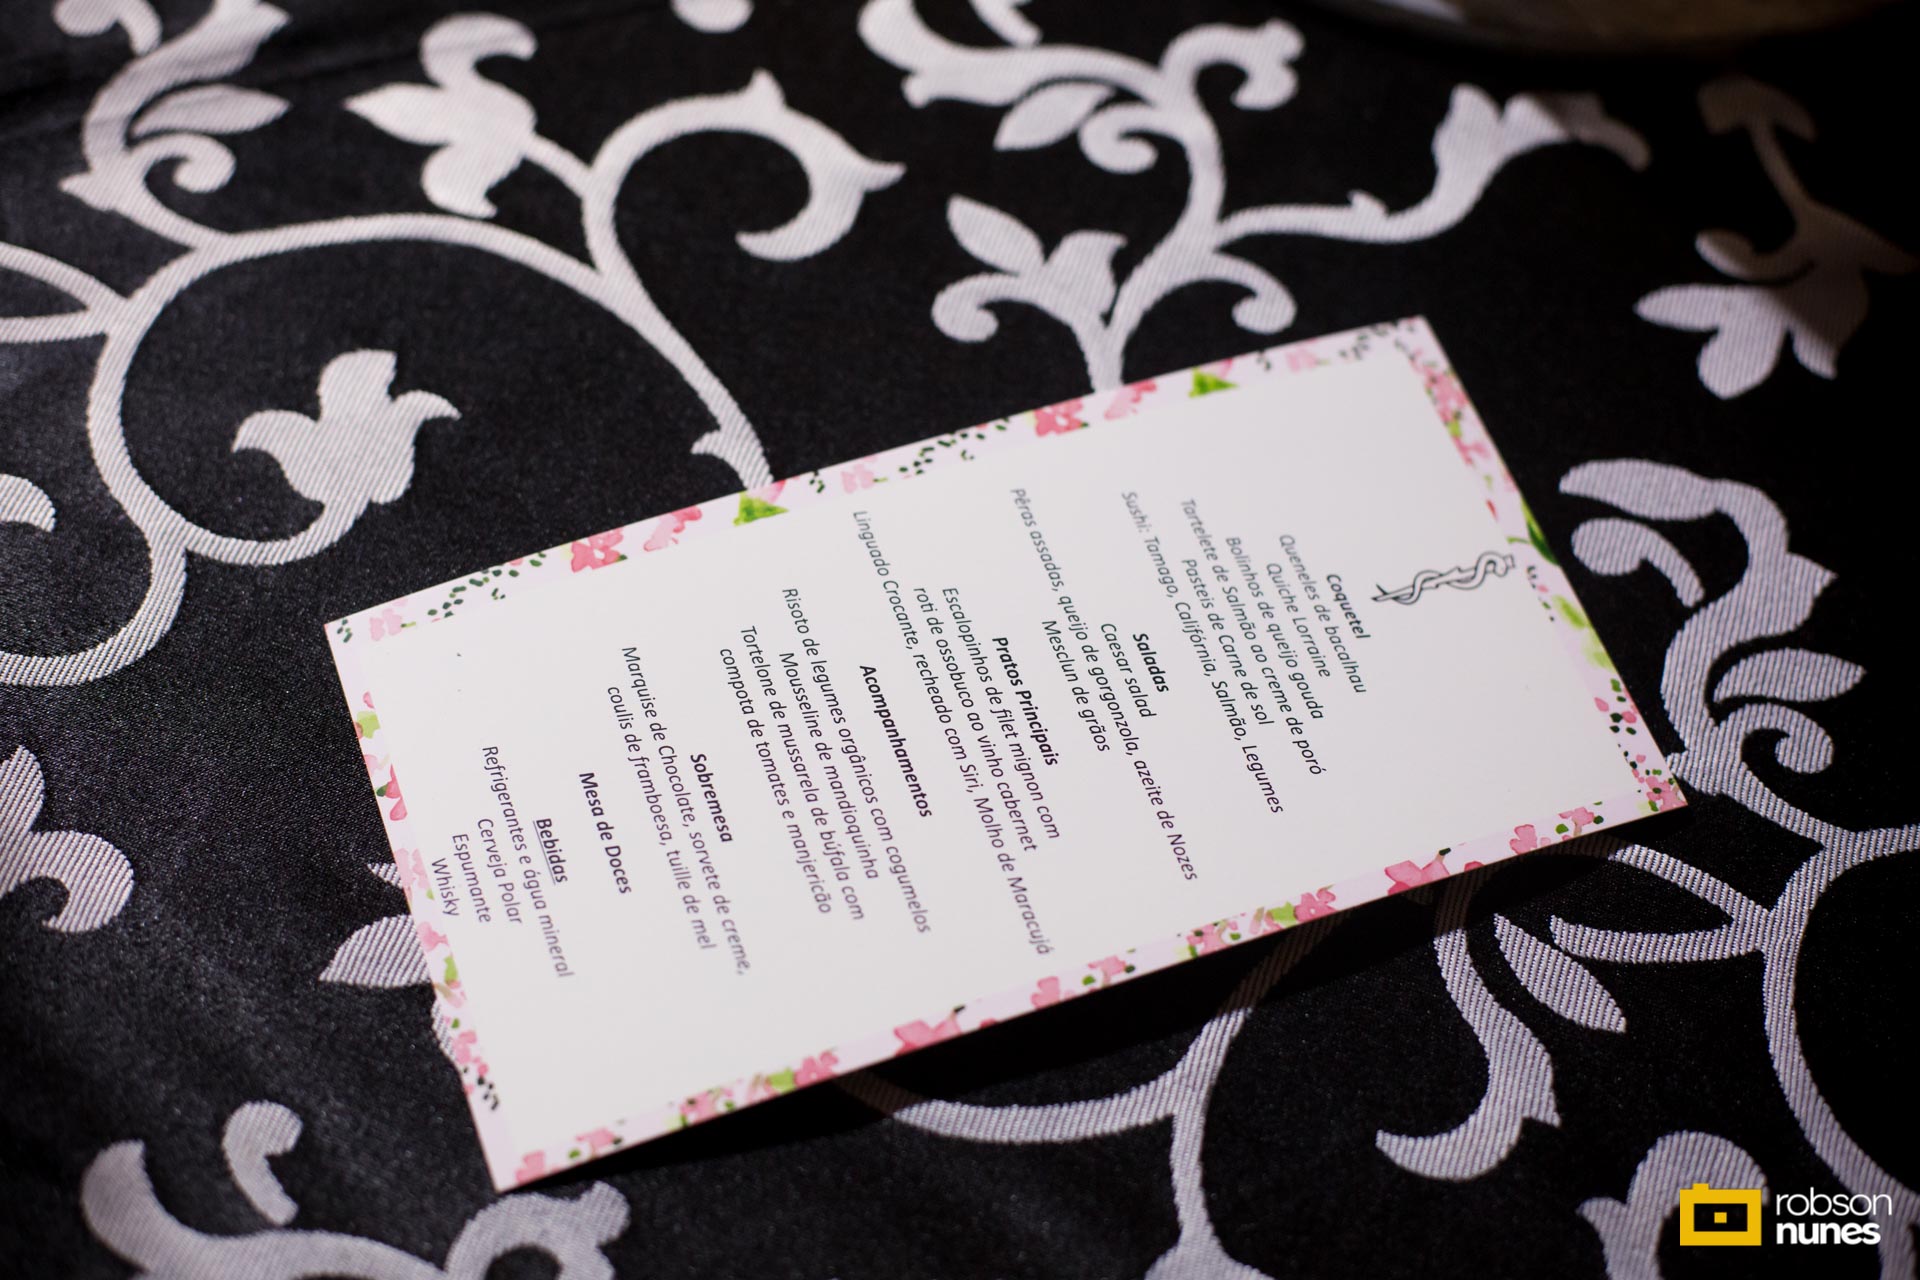 Coquetel
Queneles de bacalhau
Quiche Lorraine
Bolinhos de queijo gouda
Tartelete de Salmão ao creme de poró
Pasteis de Carne de sol
Sushi: Tamago, Califórnia, Salmão, Legumes
Saladas
Caesar salad
Pêras assadas, queijo de gorgonzola, azeite de Nozes
Mesclun de grãos
Pratos Principais
Escalopinhos de filet mignon com
roti de ossobuco ao vinho cabernet
Linguado Crocante, recheado com Siri, Molho de Maracujá
Acompanhamentos
Risoto de legumes orgânicos com cogumelos
Mousseline de mandioquinha
Tortelone de mussarela de búfala com
compota de tomates e manjericão
Sobremesa
Marquise de Chocolate, sorvete de creme,
coulis de framboesa, tuille de mel
Mesa de Doces
Bebidas
Refrigerantes e água mineral
Cerveja Polar
Espumante
Whisky
robson
nunes